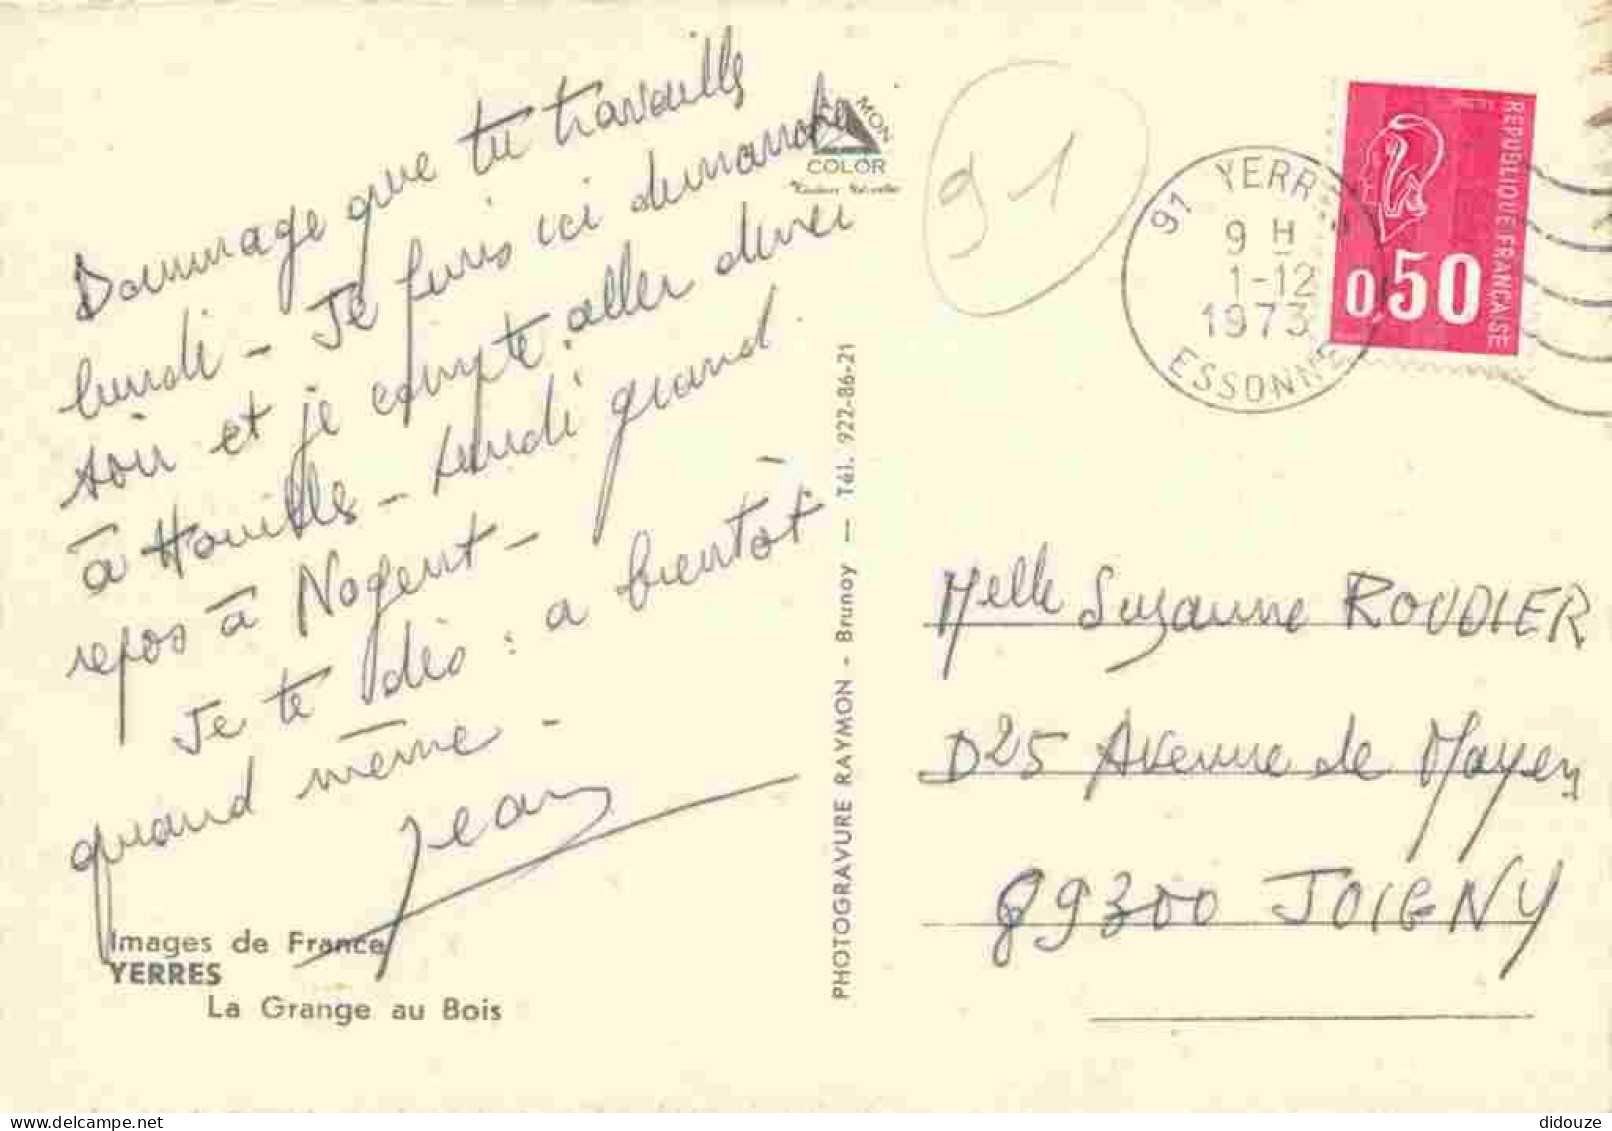 Dommage que tu travailles
lundi - Je finis ici dimanche
soir et je compte aller diner
à Houilles - Lundi grand
repos à Nogent -
Je te dis : a bientôt
quand même -
Jean
Images de France
YERRES
La Grange au Bois
MON
COLOR
PHOTOGRAVURE RAYMON - Brunoy — Tél. 922-86-21
91
91 YERR
9 H
1-12
1973
ESSONNE
REPUBLIQUE FRANÇAISE
0,50
Melle Suzanne ROUDIER
D25 Avenue de Mayen
89300 JOIGNY
didouze